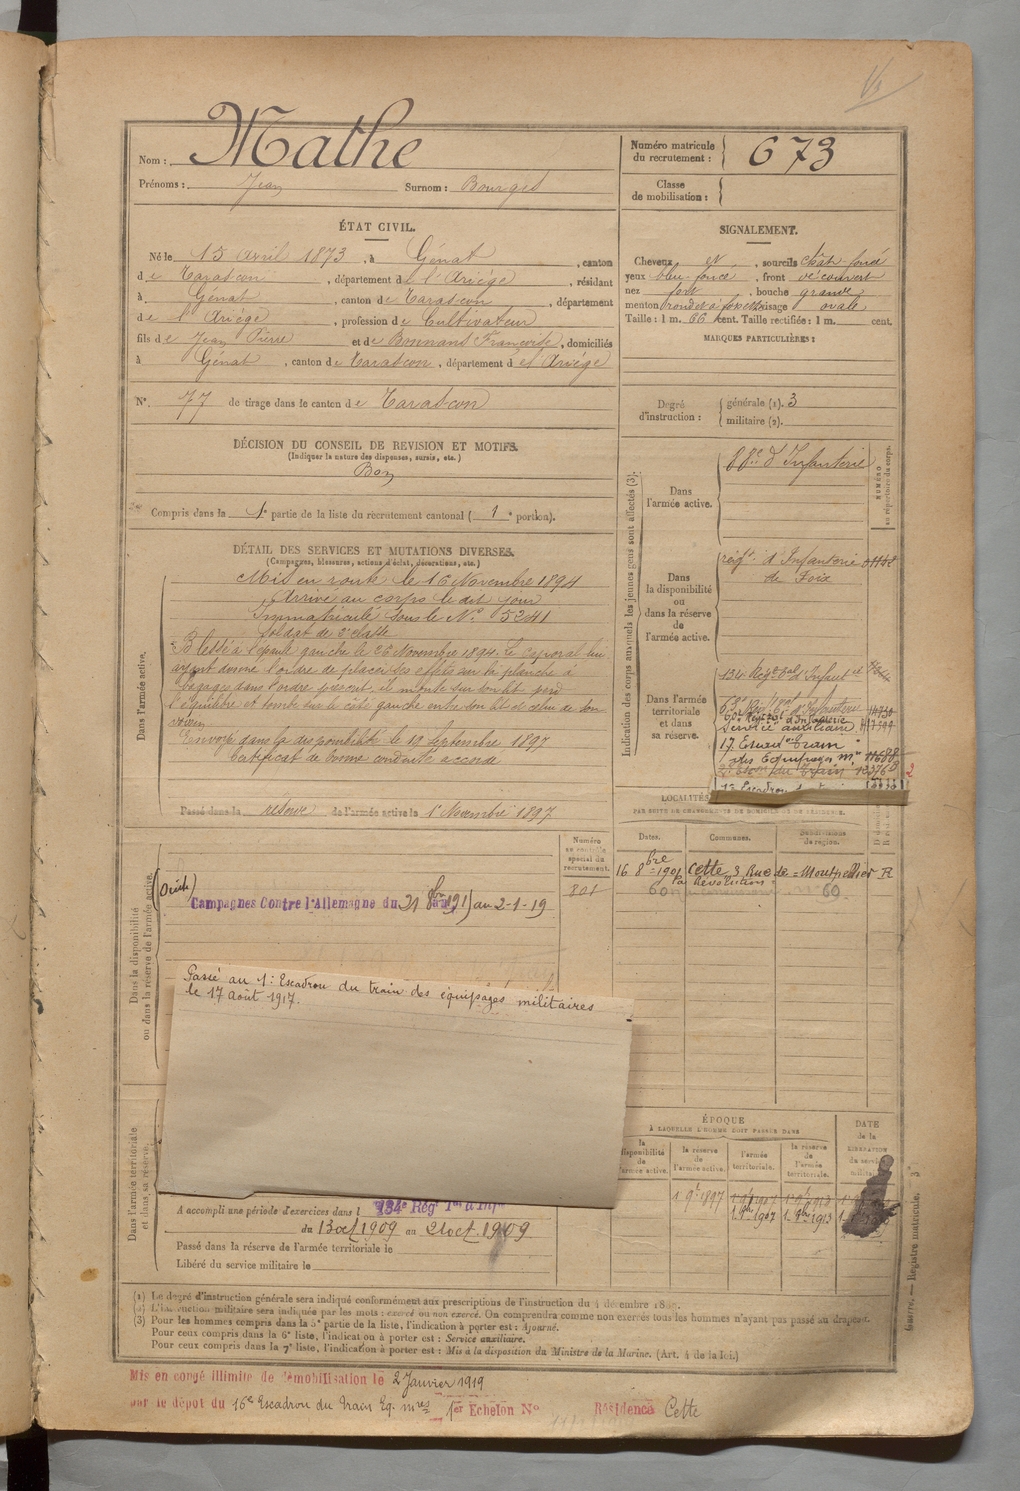 Nom : Mathe
Prénoms : Jean Surnom : Bourges
Numéro matricule du recrutement : 673
Classe de mobilisation :
ÉTAT CIVIL.
Né le 15 avril 1873, à Génat, canton
de Tarascon, département de l'Ariège, résidant
à Génat, canton de Tarascon, département
de l'Ariège, profession de Cultivateur
fils de Jean Pierre et de Bonnans Françoise, domiciliés
à Génat, canton de Tarascon, département de l'Ariège
N° 77 de tirage dans le canton de Tarascon
SIGNALEMENT.
Cheveux et, sourcils chât. foncé
yeux bleu foncé, front découvert
nez fort, bouche grande
menton rond et à fossette visage ovale
Taille : 1 m. 66 cent. Taille rectifiée : 1 m. cent.
MARQUES PARTICULIÈRES :
Degré d'instruction : générale (1). 3
militaire (2).
DÉCISION DU CONSEIL DE REVISION ET MOTIFS.
(Indiquer la nature des dispenses, sursis, etc.)
Bon
Compris dans la 1e partie de la liste du recrutement cantonal ( 1 e portion).
DÉTAIL DES SERVICES ET MUTATIONS DIVERSES.
(Campagnes, blessures, actions d'éclat, décorations, etc.)
Dans l'armée active.
Mis en route le 16 Novembre 1894
Arrivé au corps le dit jour
Immatriculé sous le N° 5241
Soldat de 2e classe
Blessé à l'épaule gauche le 25 Novembre 1894. Le caporal lui
ayant donné l'ordre de placer ses effets sur la planche à
bagages dans l'ordre prescrit, il monte sur son lit perd
l'équilibre et tombe sur le côté gauche entre son lit et celui de son
voisin
Envoyé dans la disponibilité le 19 Septembre 1897
Certificat de bonne conduite accordé
Passé dans la réserve de l'armée active le 1er Novembre 1897
Indication des corps auxquels les jeunes gens sont affectés (3).
NUMÉRO au répertoire du corps.
Dans l'armée active.
88e d'Infanterie
Dans la disponibilité ou dans la réserve de l'armée active.
régt. d'Infanterie 01148
de Foix
Dans l'armée territoriale et dans sa réserve.
134 Régt Tal d'Infant
Service auxiliaire
17 Escad on Train
des Equipages m.re 11688
2
LOCALITÉS
PAR SUITE DE CHANGEMENTS DE DOMICILE OU DE RÉSIDENCE.
Dates. Communes. Subdivisions de région.
16. 8bre 1901 Cette 3 Rue de Montpellier R
la Révolution
Dans la disponibilité ou dans la réserve de l'armée active.
Numéro au contrôle spécial du recrutement.
801
Campagnes Contre l'Allemagne du au 2-1-19
Passé au 1er Escadron du train des équipages militaires
le 17 Août 1917.
Dans l'armée territoriale et dans sa réserve.
ÉPOQUE
À LAQUELLE L'HOMME DOIT PASSER DANS
la disponibilité de l'armée active.
la réserve de l'armée active.
l'armée territoriale.
la réserve de l'armée territoriale.
DATE de la LIBÉRATION du service militaire
1 9e 1897 1 9bre 1907 1 9bre 1913
1. 9bre 1907 1. 9bre 1913
A accompli une période d'exercices dans l 134e Régt Tal d'Infie
du 13 oct 1909 au 21 oct. 1909
Passé dans la réserve de l'armée territoriale le
Libéré du service militaire le
(1) Le degré d'instruction générale sera indiqué conformément aux prescriptions de l'instruction du 4 décembre
(2) L'instruction militaire sera indiquée par les mots : exercé ou non exercé. On comprendra comme non exercés tous les hommes n'ayant pas passé au drapeau.
(3) Pour les hommes compris dans la 5e partie de la liste, l'indication à porter est : Ajourné.
Pour ceux compris dans la 6e liste, l'indication à porter est : Service auxiliaire.
Pour ceux compris dans la 7e liste, l'indication à porter est : Mis à la disposition du Ministre de la Marine. (Art. 4 de la loi.)
Guerre. — Registre matricule. 3
Mis en congé illimité de démobilisation le 2 Janvier 1919
par le dépôt du 16e Escadron du Train Eq. mres 1er Echelon N° Résidence Cette